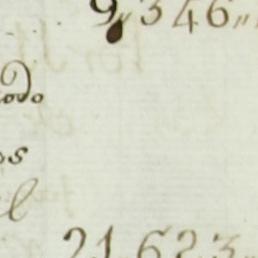 9,,346,,
odo
os
l
21,,623,,